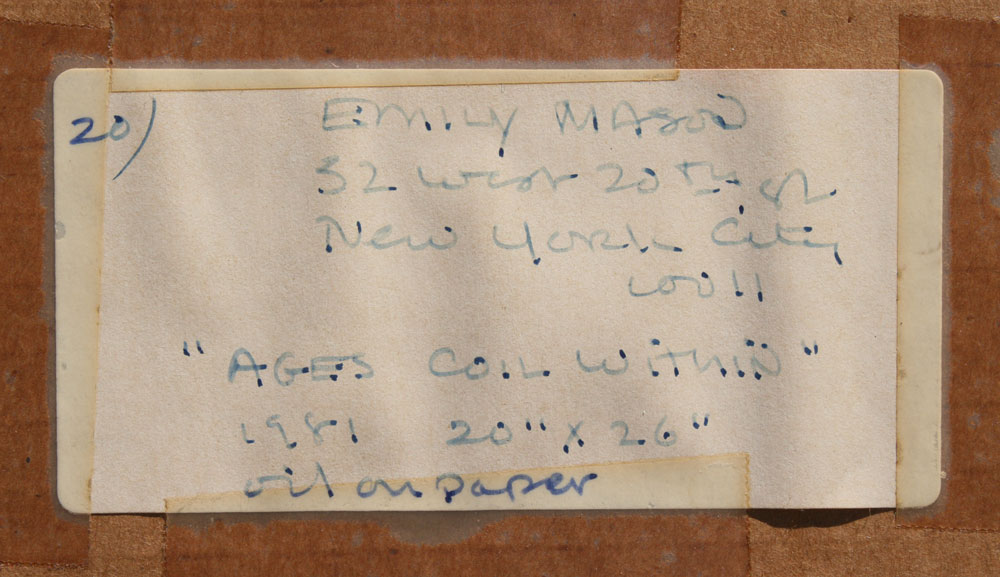 20) EMILY MASON
32 West 20th St
New York City
10011
"AGES COIL WITHIN"
1981 20" x 26"
oil on paper